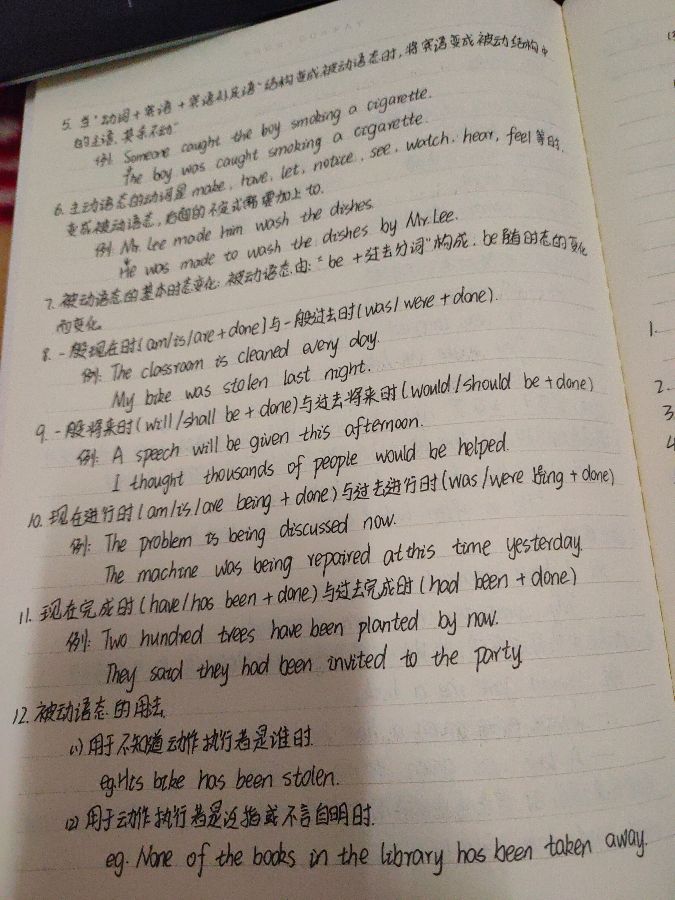 5. 当"动词+宾语+宾语补足语"结构变成被动语态时,将宾语变成被动结构中
的主语,其余不动"
例: Someone caught the boy smoking a cigarette.
The boy was caught smoking a cigarette.
6. 主动语态的动词是make, have, let, notice, see, watch, hear, feel等时,
变成被动语态,后面的不定式都需加上to.
例: Mr. Lee made him wash the dishes.
He was made to wash the dishes by Mr. Lee.
7. 被动语态的基本时态变化: 被动语态由: "be +过去分词"构成, be随时态的变化
而变化.
8. 一般现在时(am/is/are+done)与一般过去时(was/were+done).
例: The classroom is cleaned every day.
My bike was stolen last night.
9. 一般将来时(will/shall be+done)与过去将来时(would/should be+done)
例: A speech will be given this afternoon.
I thought thousands of people would be helped.
10. 现在进行时(am/is/are being+done)与过去进行时(was/were being+done)
例: The problem is being discussed now.
The machine was being repaired at this time yesterday.
11. 现在完成时(have/has been+done)与过去完成时(had been+done)
例: Two hundred trees have been planted by now.
They said they had been invited to the party.
12. 被动语态的用法.
(1) 用于不知道动作执行者是谁时.
eg. His bike has been stolen.
(2) 用于动作执行者是泛指或不言自明时.
eg. None of the books in the library has been taken away.
1.
2.
3
4